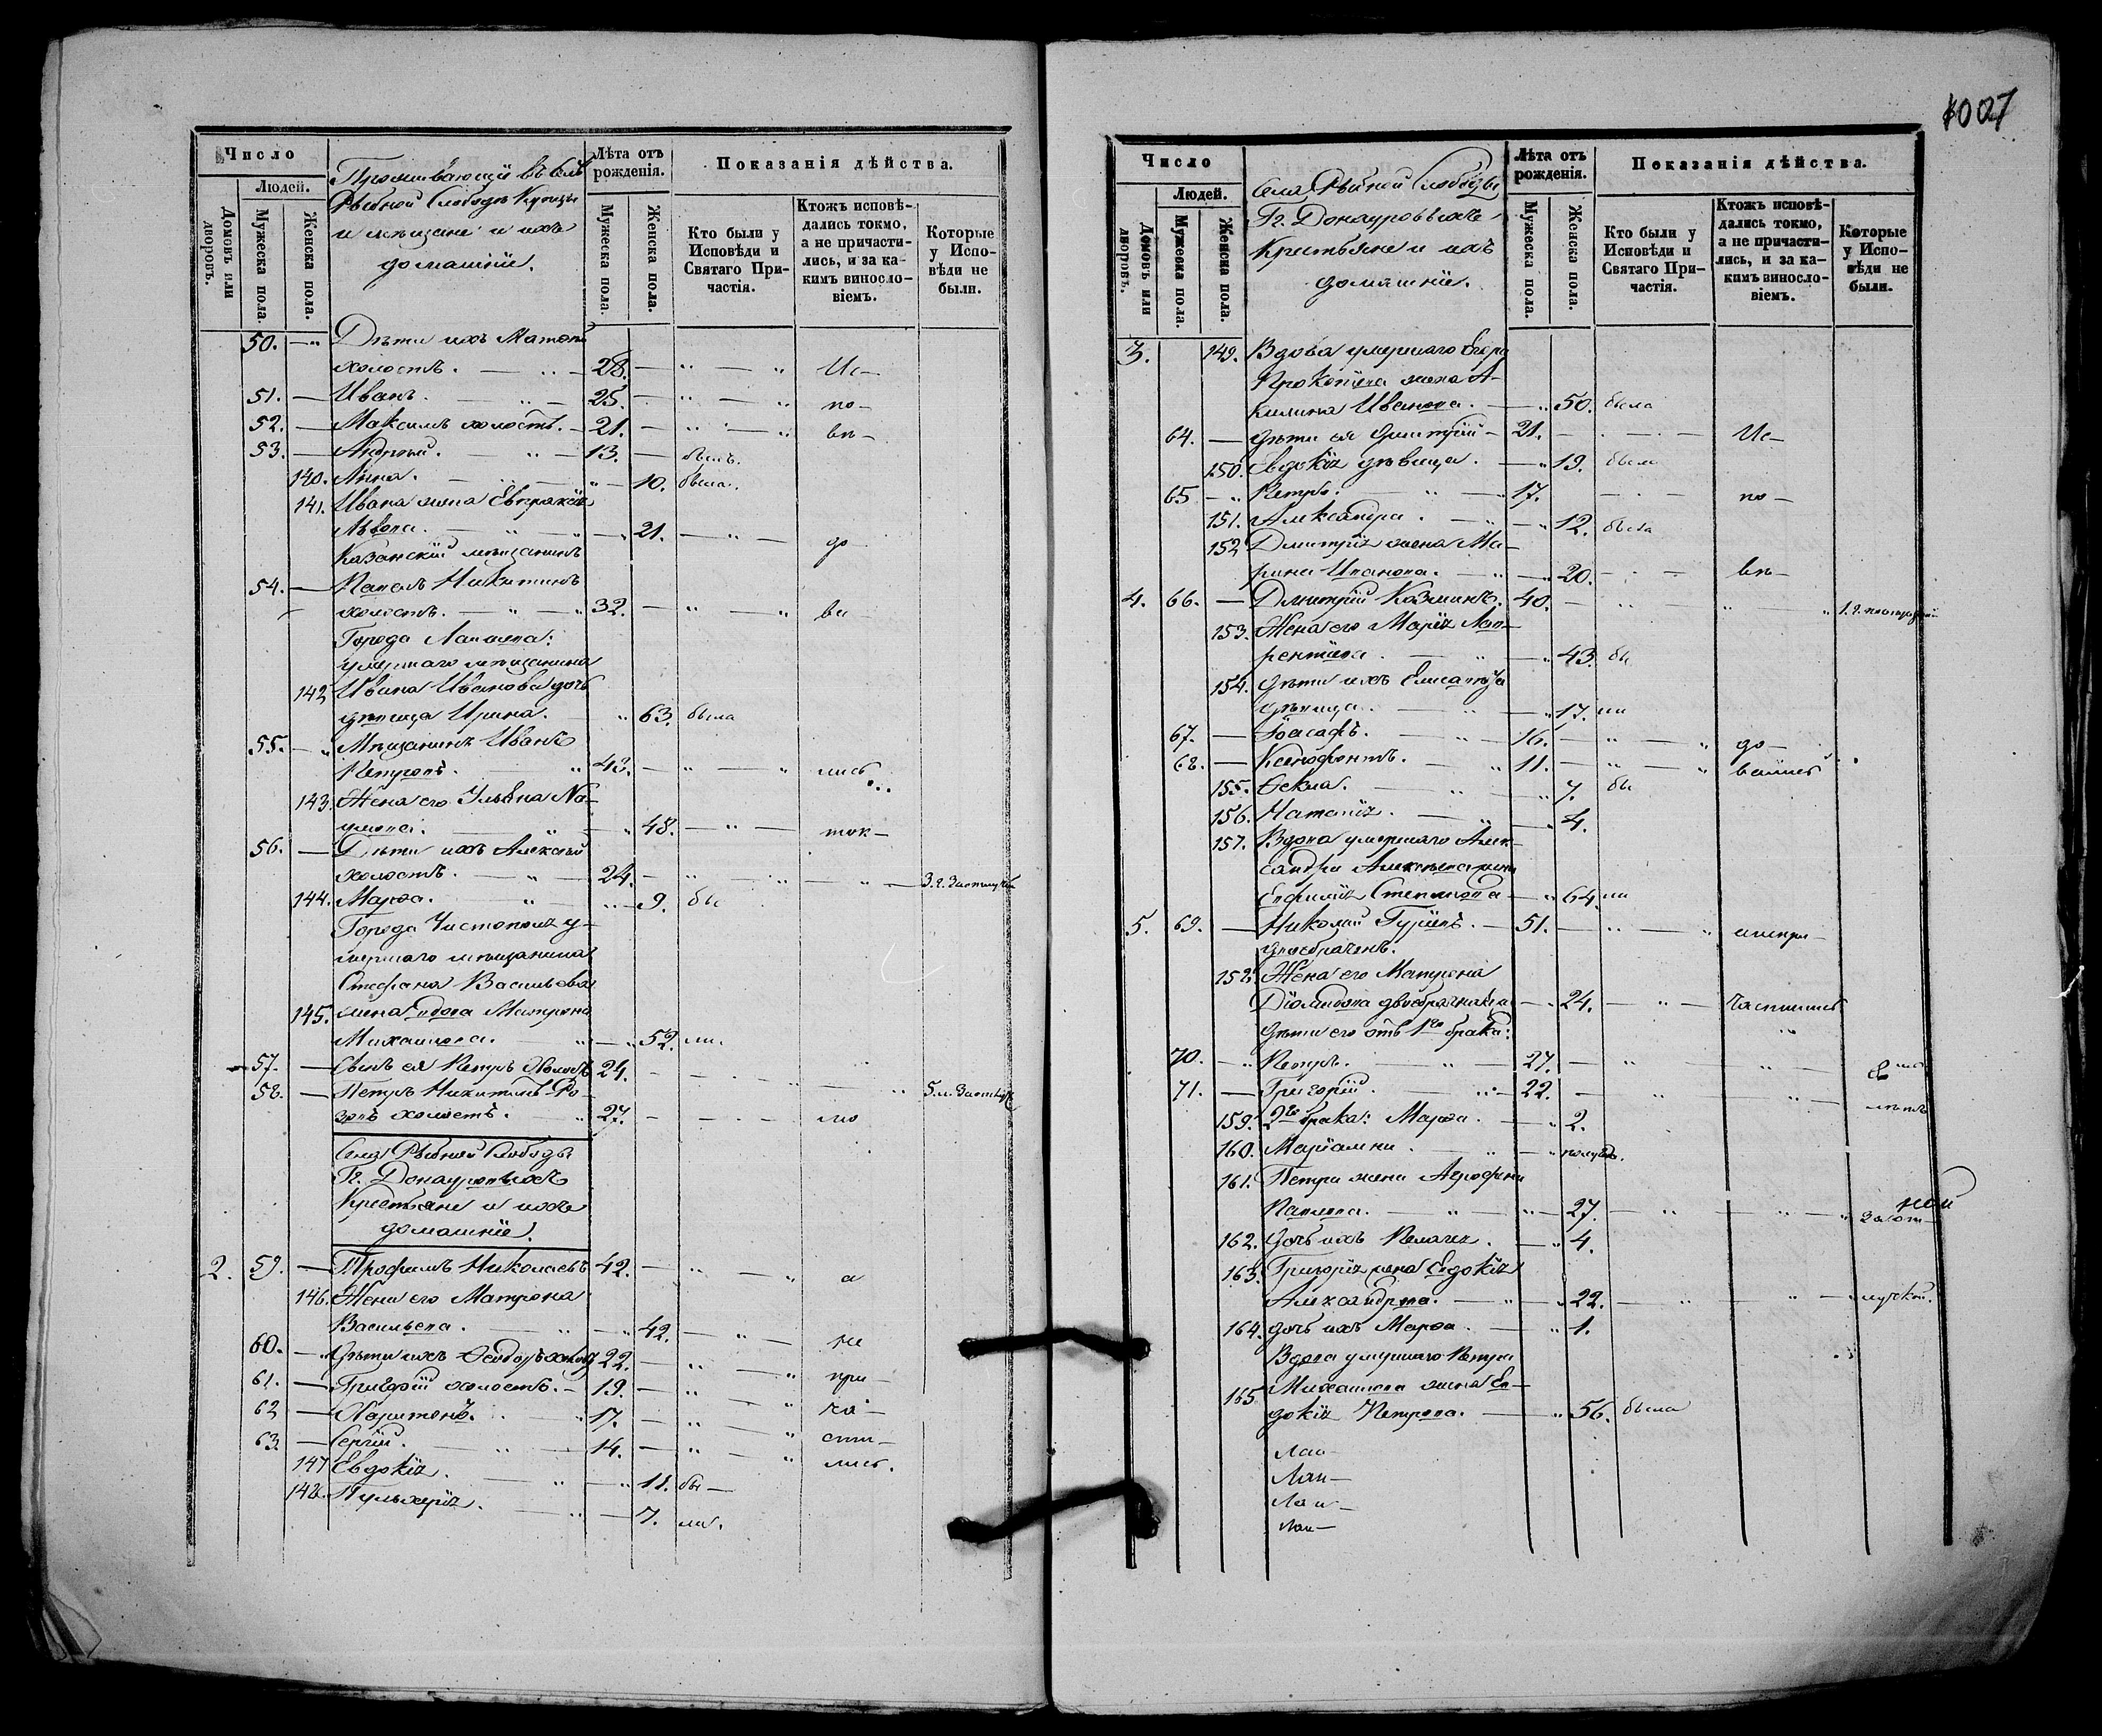 Число
Людей.
Домовъ или дворовъ.
Мужеска пола.
Женска пола.
Проживающіе въ селѣ
Рыбной Слободѣ Купцы
и мѣщане и ихъ
домашніе.
Лѣта отъ рожденія.
Мужеска пола.
Женска пола.
Показанія дѣйства.
Кто были у Исповѣди и Святаго Причастія.
Ктожъ исповѣдались токмо, а не причастились, и за какимъ винословіемъ.
Которые у Исповѣди не были.
50. — Дѣти ихъ
холостъ. — 28. — Ис—
51. — Иванъ. — 25. — по—
52. — Максимъ холостъ. — 21. — вѣ—
53. — Андрей. — 13. — былъ.
140. Анна. — 10. была.
141. Ивана жена Евпраксія
Львова. — 21. — до
Казанскій мѣщанинъ
54. — Павелъ Никитинъ
холостъ. — 32. — ва
Города Лаишева:
умершаго мѣщанина
142. Ивана Иванова дочь
дѣвица Ирина. 63. была
55. — Мѣщанинъ Иванъ
Петровъ. 43. — лись
143. Жена его Ульяна На-
умова. — 48. — ток—
56. — Дѣти ихъ Алексѣй
холостъ. — 24. — 3. г.
144. Марѳа. — 9. бы
Города Чистополя у-
мершаго мѣщанина
Стефана Васильева
145. жена вдова Матрона
Михайлова. — 52. ли.
57. — Сынъ ея Петръ холостъ 24. — 5.
58. — Петръ Никитинъ Ро-
зовъ холостъ. 27. — мо
Села Рыбной Слободы
Гг. Донауровыхъ
Крестьяне и ихъ
домашніе.
2. 59. — Трофимъ Николаевъ 42. — а
146. Жена его Матрона
Васильева. — 42. — не
60. — Дѣти ихъ Ѳеодоръ холост 22. —
61. — Григорій холостъ. — 19. — при—
62 — Харитонъ. 17. — ча—
63 — Сергій. — 14. — сти—
147 Евдокія. — 11. бы— лись.
148. Пульхерія. — 7. ла.
1027
Число
Людей.
Домовъ или дворовъ.
Мужеска пола.
Женска пола.
Села Рыбной Слободы
Гг. Донауровыхъ
Крестьяне и ихъ
домашніе.
Лѣта отъ рожденія.
Мужеска пола.
Женска пола.
Показанія дѣйства.
Кто были у Исповѣди и Святаго Причастія.
Ктожъ исповѣдались токмо, а не причастились, и за какимъ винословіемъ.
Которые у Исповѣди не были.
3. 149. Вдова умершаго Егора
Прокопіева жена А-
килина Иванова. — 50. была
64. — дѣти ея Димитрій — 21. — Ис—
150. Евдокія дѣвица. — 19. была
65 — Петръ. — 17. — по—
151. Александра. — 12. была
152 Димитрія жена Ма-
рина Иванова. — 20. — вѣ—
4. 66. — Димитрій Казминъ. 40. — 1. г.
153. Жена его Марія Лав-
рентіева. — 43. бы
154. дѣти ихъ Елисавета
дѣвица. — 17. ли
67. — Іоасафъ. — 16. — до—
68. — Ксенофонтъ. — 11. — вались
155. Ѳекла. — 7. бы
156. Наталія. — 4.
157. Вдова умершаго Алек-
сандра Алексѣева жена
Евфимія Степанова — 64. ли
5. 69. — Николай Гурьевъ. — 51. —
двоебраченъ.
158. Жена его Матрона
Діомидова двоебрачная — 24. — частились
дѣти его отъ 1го брака:
70. — Петръ. — 27. —
71. — Григорій. — 22. —
159. 2го брака: Марѳа. — 2.
160. Маріамна. — полугода.
161. Петра жена Агрофена
Павлова. — 27. —
162. дочь ихъ Пелагія. — 4.
163. Григорія жена Евдокія
Александрова. — 22. —
164. дочь ихъ Марѳа. — 1.
Вдова умершаго Петра
165 Михайлова жена Ев-
докія Петрова. — 56. была